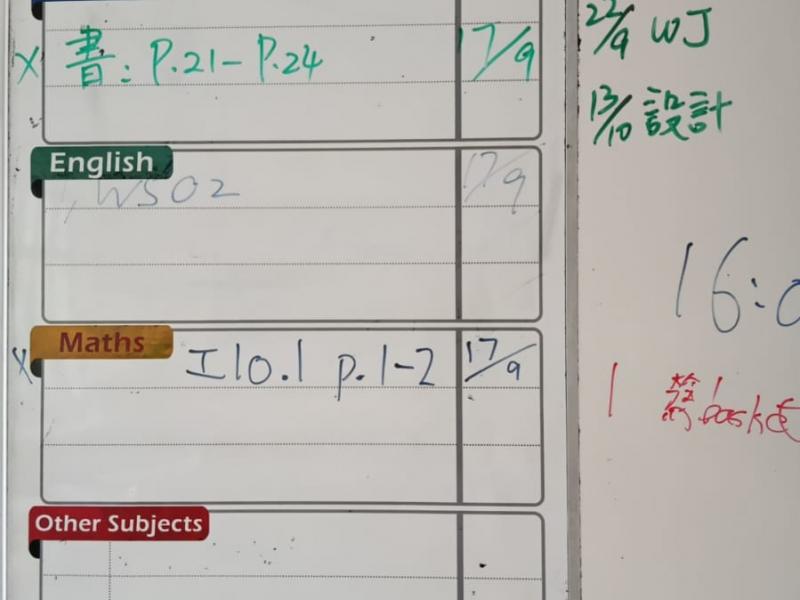 X 書：P.21-P.24 17/9
English
WS02 17/9
Maths
X 工10.1 p.1-2 17/9
Other Subjects
22/9 WJ
13/10 設計
16:0
1